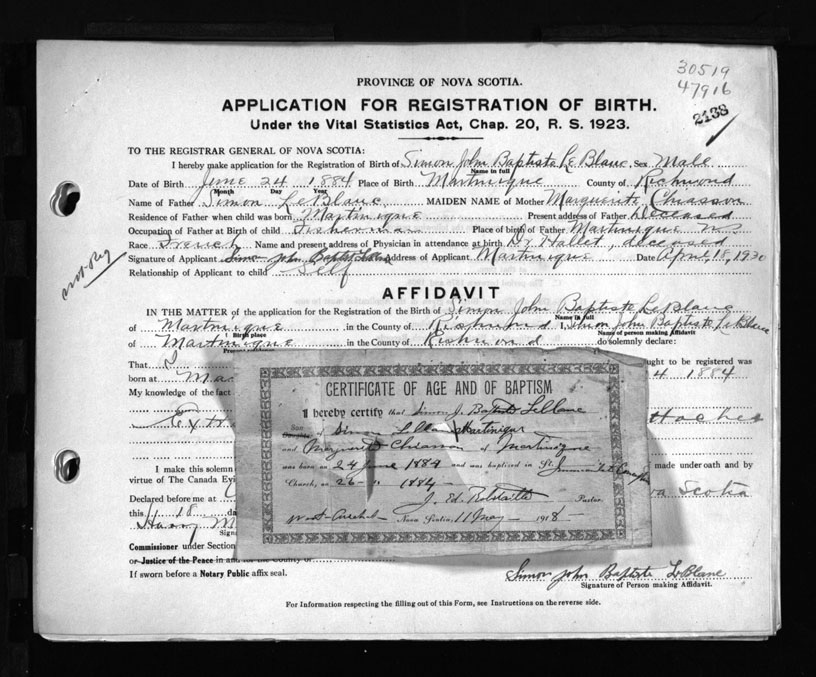 30519
47916
2138
PROVINCE OF NOVA SCOTIA.
APPLICATION FOR REGISTRATION OF BIRTH.
Under the Vital Statistics Act, Chap. 20, R. S. 1923.
TO THE REGISTRAR GENERAL OF NOVA SCOTIA:
I hereby make application for the Registration of Birth of Simon John Baptiste LeBlanc Sex Male
Name in full
Date of Birth June 24 1884 Place of Birth Martinique County of Richmond
Month Day Year
Name of Father Simon LeBlanc MAIDEN NAME of Mother Marguerite Chiasson
Residence of Father when child was born Martinique Present address of Father Deceased
Occupation of Father at Birth of child Fisherman Place of birth of Father Martinique N S
Race French Name and present address of Physician in attendance at birth Dr Hallet, deceased
Signature of Applicant Simon John Baptist LeBlanc Address of Applicant Martinique Date April, 18, 1930
Relationship of Applicant to child Self
not Reg
AFFIDAVIT
IN THE MATTER of the application for the Registration of the Birth of Simon John Baptiste LeBlanc
Name in full
of Martinique in the County of Richmond I, Simon John Baptiste LeBlanc
Birth place Name of person making Affidavit
of Martinique in the County of Richmond do solemnly declare:
That I ought to be registered was
born at Ma 4 1884
My knowledge of the fact
Ext
I make this solemn made under oath and by
virtue of The Canada Evi va Scotia
Declared before me at
this 18 da
Harry M
Commissioner under Section
or Justice of the Peace in and for the County of
If sworn before a Notary Public affix seal.
CERTIFICATE OF AGE AND OF BAPTISM
I hereby certify that Simon J. Baptiste Leblanc
Son
Daughter of Simon LeBlanc Martinique
and Marguerite Chiasson of Martinique
was born on 24 June 1884 and was baptised in St. Immaculate Conception
Church, on 26 - " 1884 -
J. Ed. Pastor
West Arichat - Nova Scotia, 11 May - 1918
Simon John Baptiste LeBlanc
Signature of Person making Affidavit.
For Information respecting the filling out of this Form, see Instructions on the reverse side.